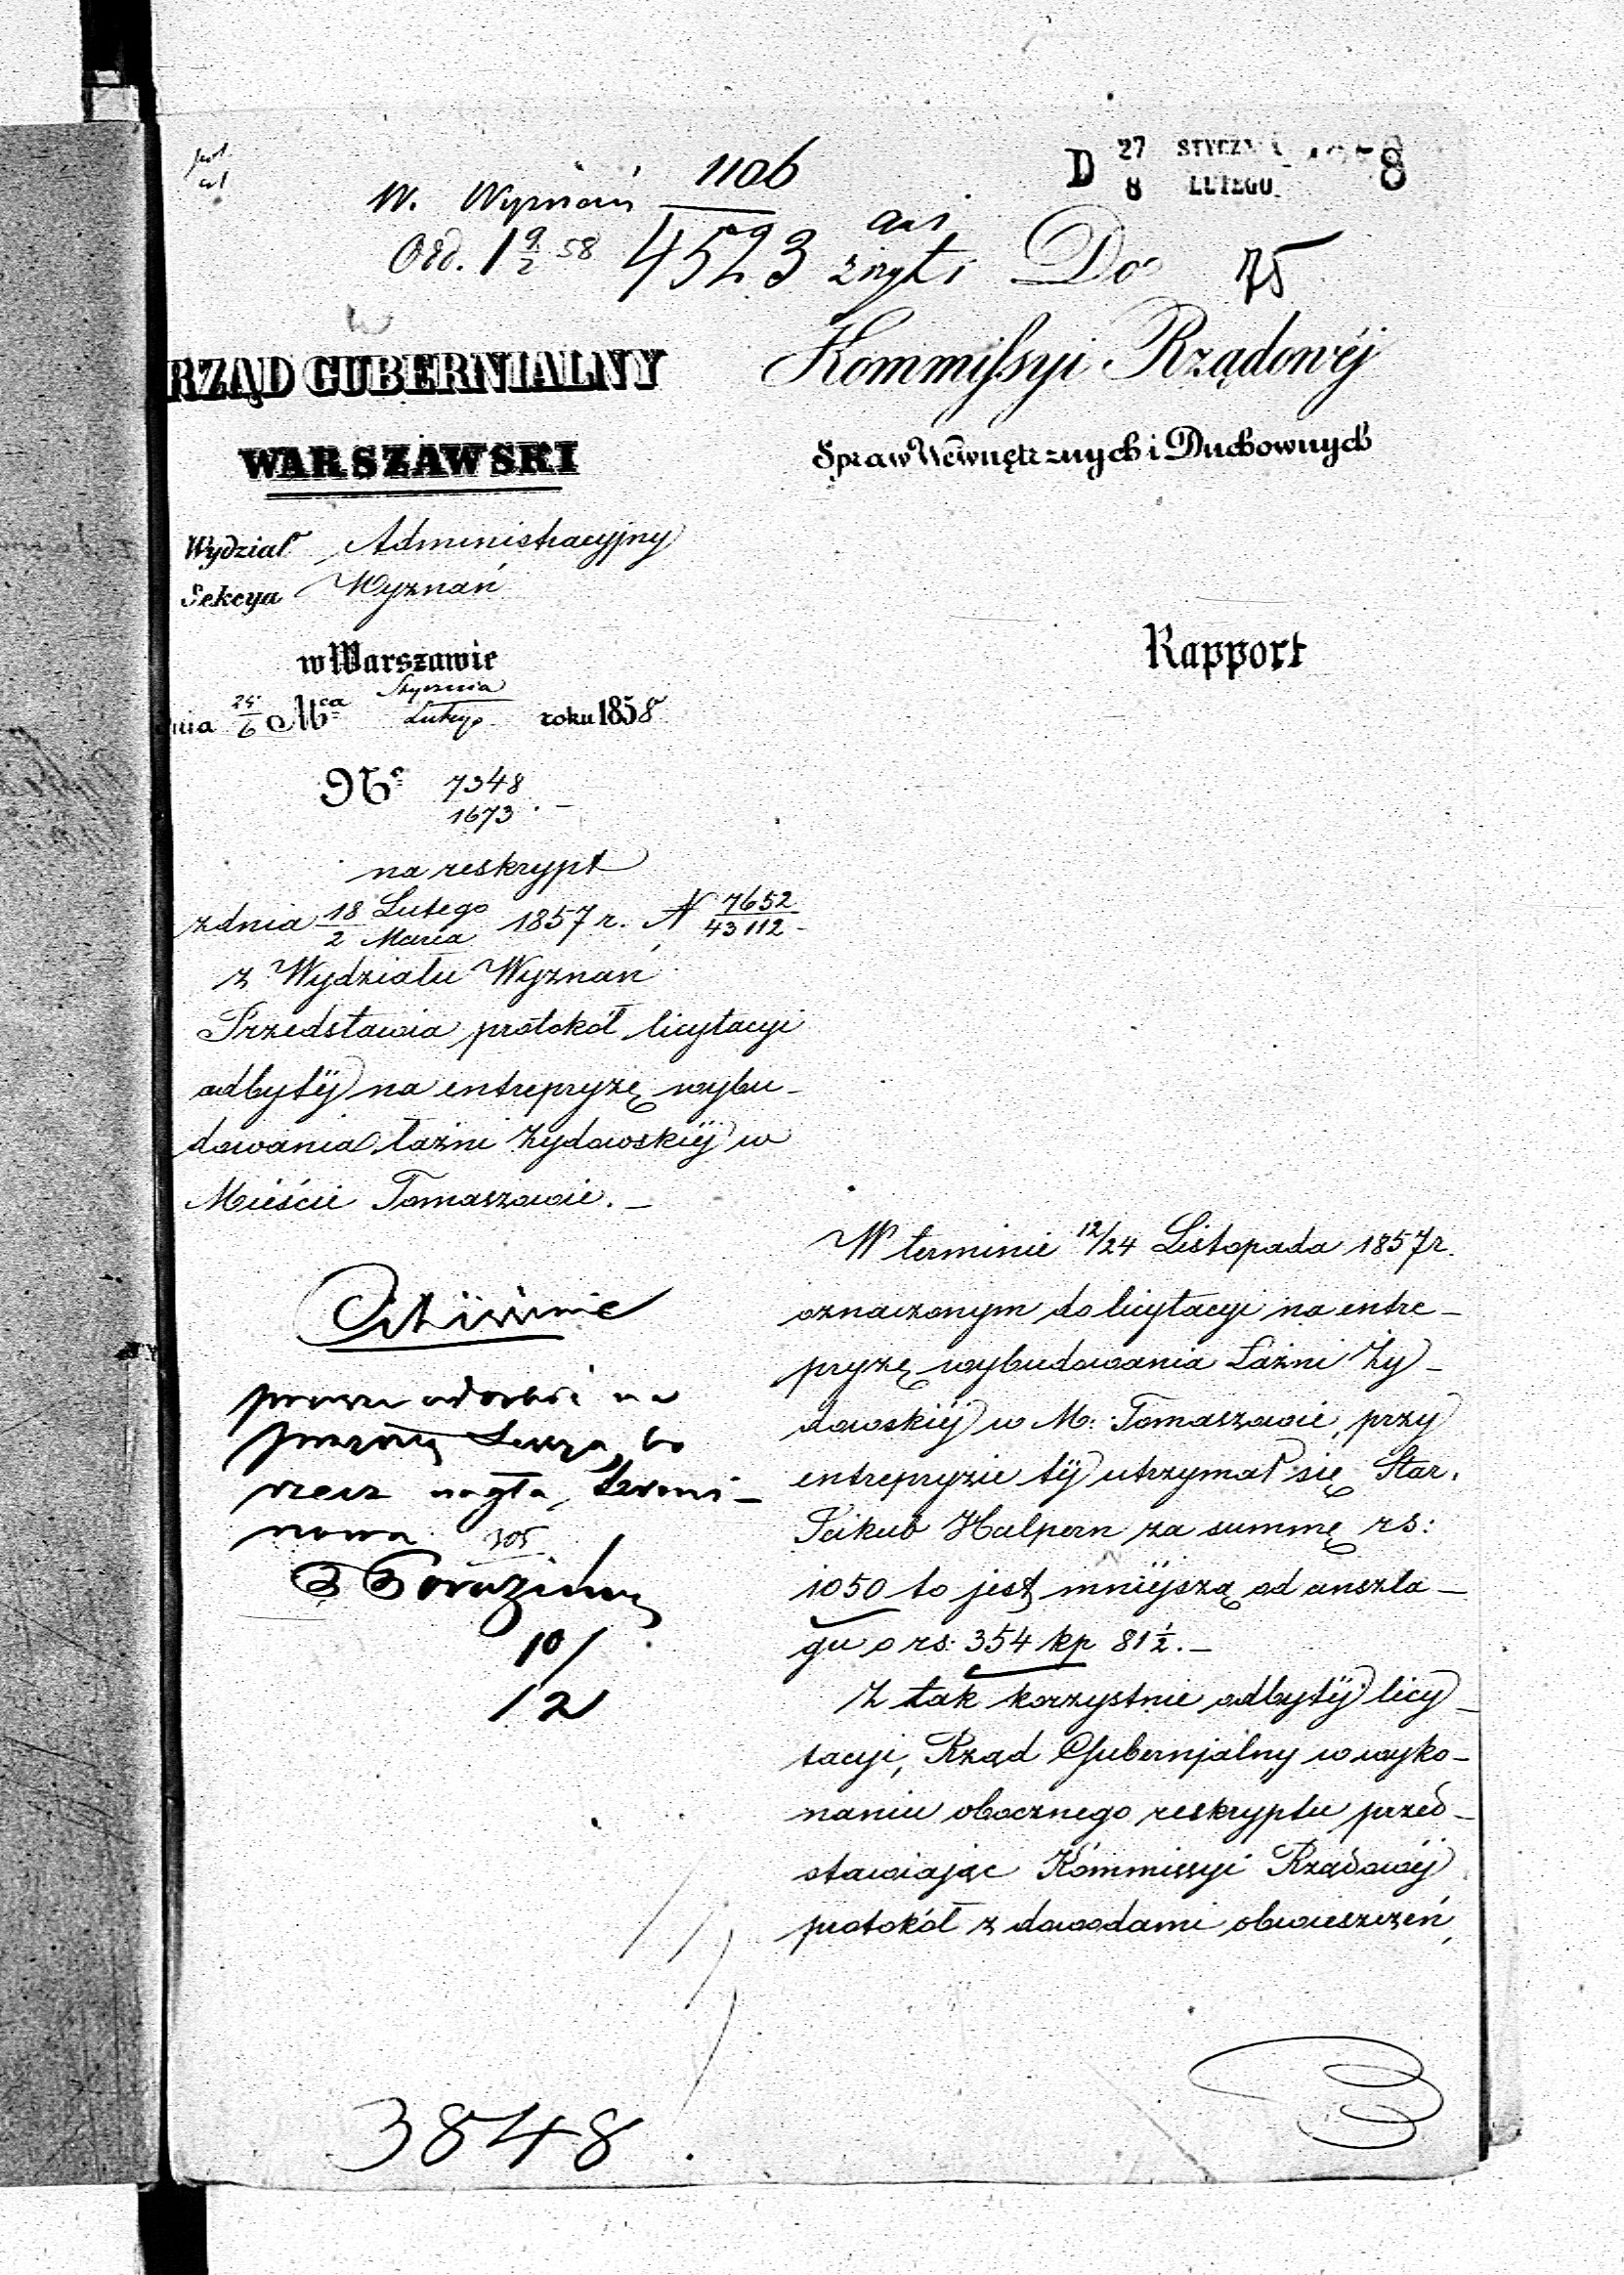 1106
D 27 STYCZNIA
8 LUTEGO 8
W. Wyznań
Odd. 1 9/2 58 4523 Do 75
RZĄD GUBERNIALNY
WARSZAWSKI
Wydział Administracyjny
Sekcya Wyznań
w Warszawie
dnia 25/6 Mca Stycznia/Lutego roku 1858
No 7348
1673. —
na reskrypt
z dnia 18 Lutego/2 Marca 1857 r. N 7652/43112 -
z Wydziału Wyznań
Przedstawia protokół licytacyi
odbytéj na entrepryzę wybu-
dowania łaźni żydowskiéj w
Mieście Tomaszowie. —
rzecz nagła,
nowa 305
10/
/2
3848
Kommissyi Rządowéj
Spraw Wewnętrznych i Duchownych
Rapport
W terminie 12/24 Listopada 1857 r.
oznaczonym do licytacyi na entre-
pryzę wybudowania Łaźni Ży-
dowskiéj w M. Tomaszowie, przy
entrepryzie téj utrzymał się Star.
Jakub Halpern za summę rs:
1050 to jest mniéjszą od anszla-
gu o rs. 354 kp 81 1/2. —
Z tak korzystnie odbytéj licy-
tacyi, Rząd Gubernjalny w wyko-
naniu obocznego reskryptu przed-
stawiając Kommissyi Rządowéj
protokół z dowodami obwieszczeń,